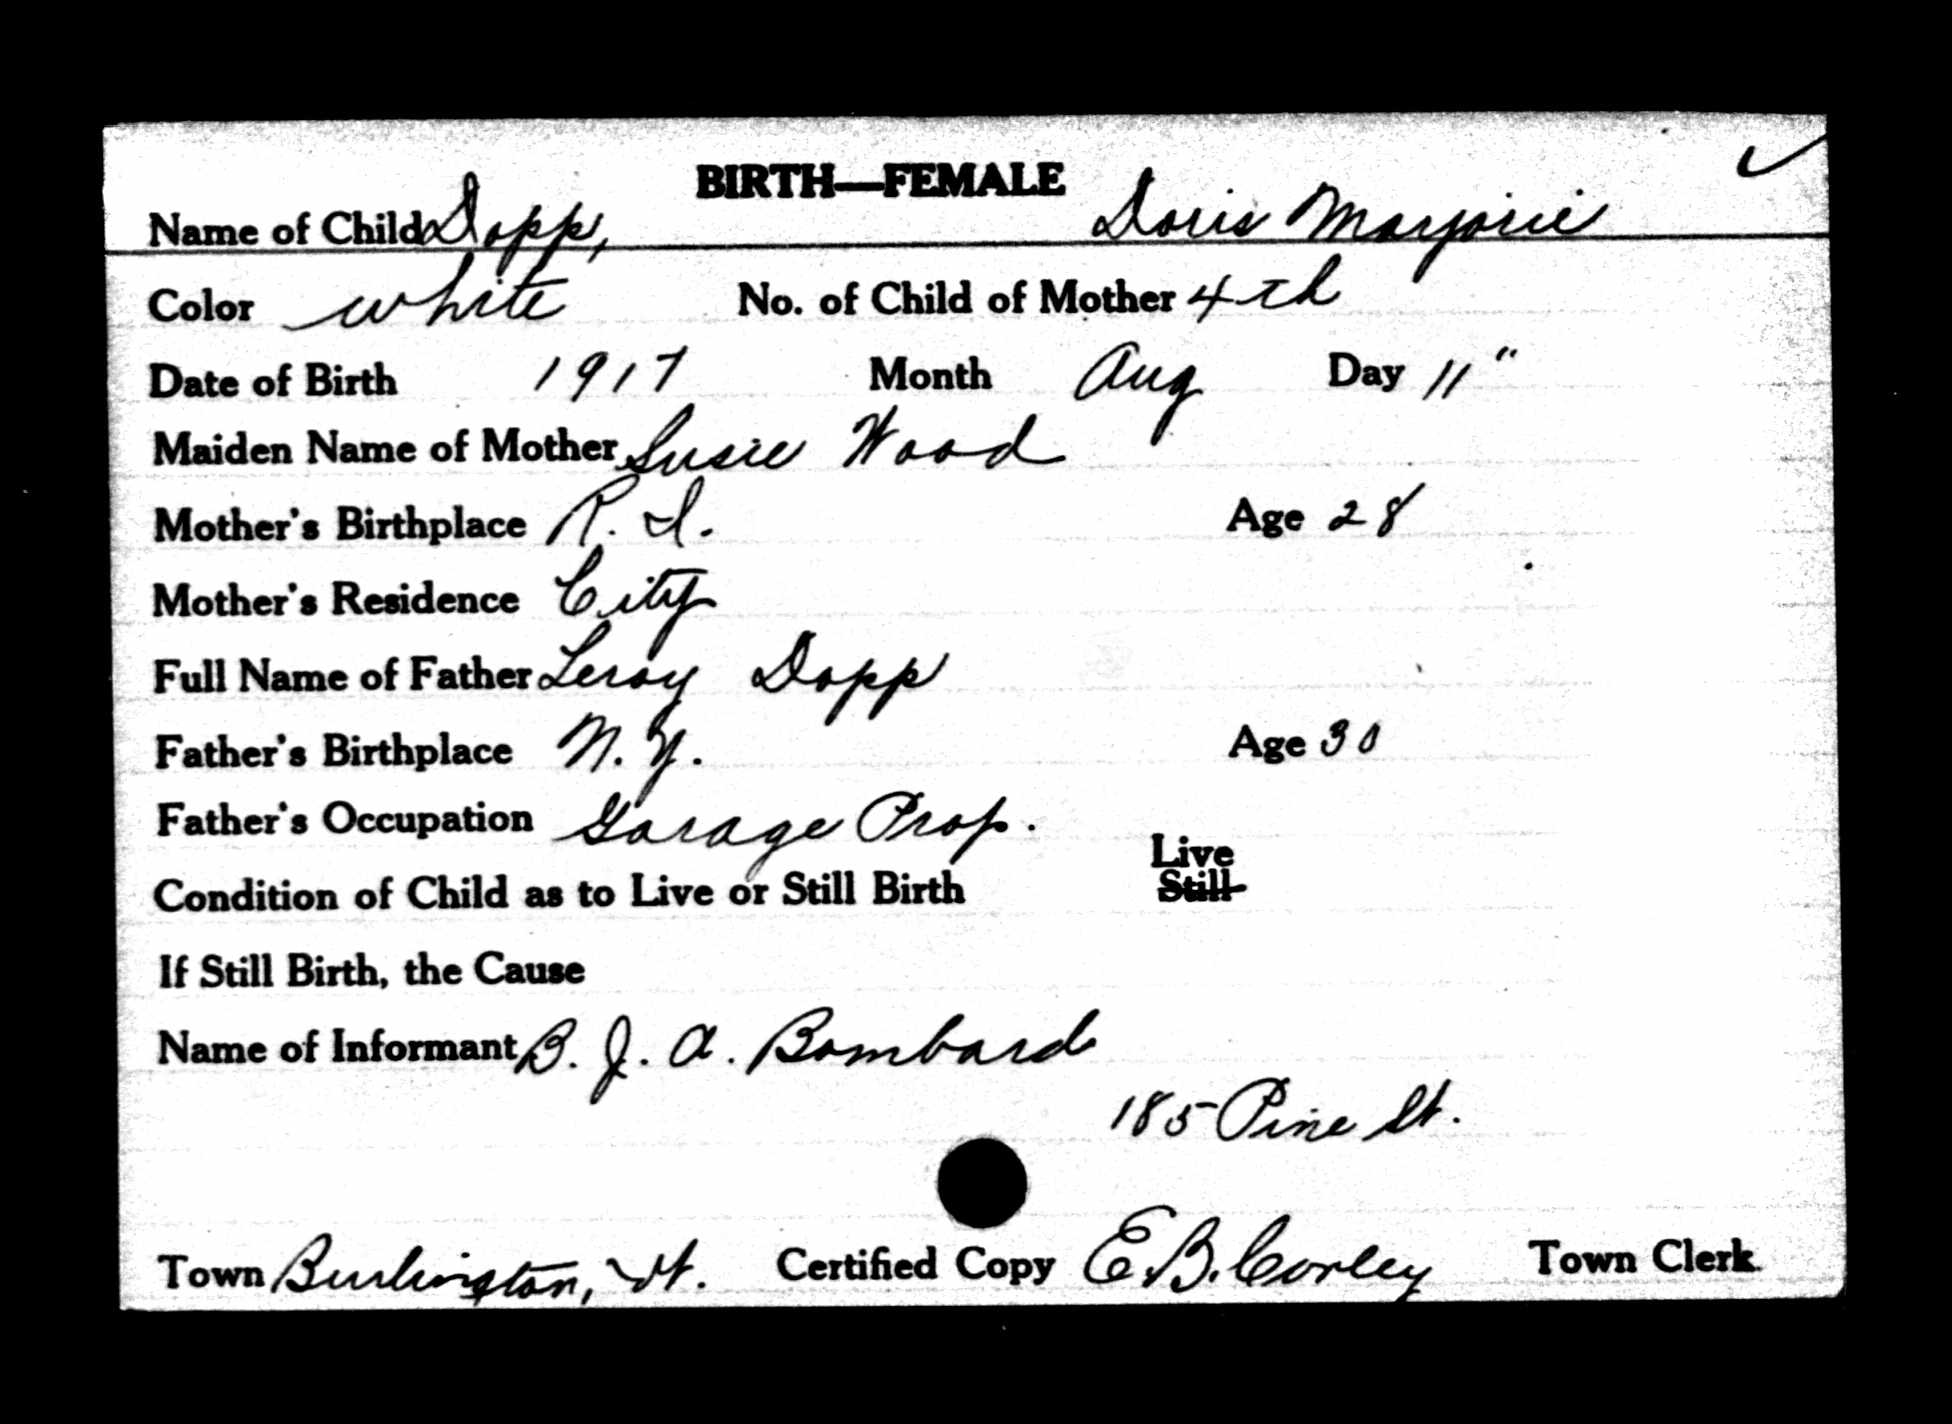 BIRTH—FEMALE
Name of Child Dopp, Doris Marjorie
Color white No. of Child of Mother 4th
Date of Birth 1917 Month Aug Day 11"
Maiden Name of Mother Susie Wood
Mother's Birthplace R. I. Age 28
Mother's Residence City
Full Name of Father Leroy Dopp
Father's Birthplace N. Y. Age 30
Father's Occupation Garage Prop.
Live
Condition of Child as to Live or Still Birth Still
If Still Birth, the Cause
Name of Informant B. J. A. Bombard
185 Pine St.
Town Burlington, Vt. Certified Copy E. B. Corley Town Clerk